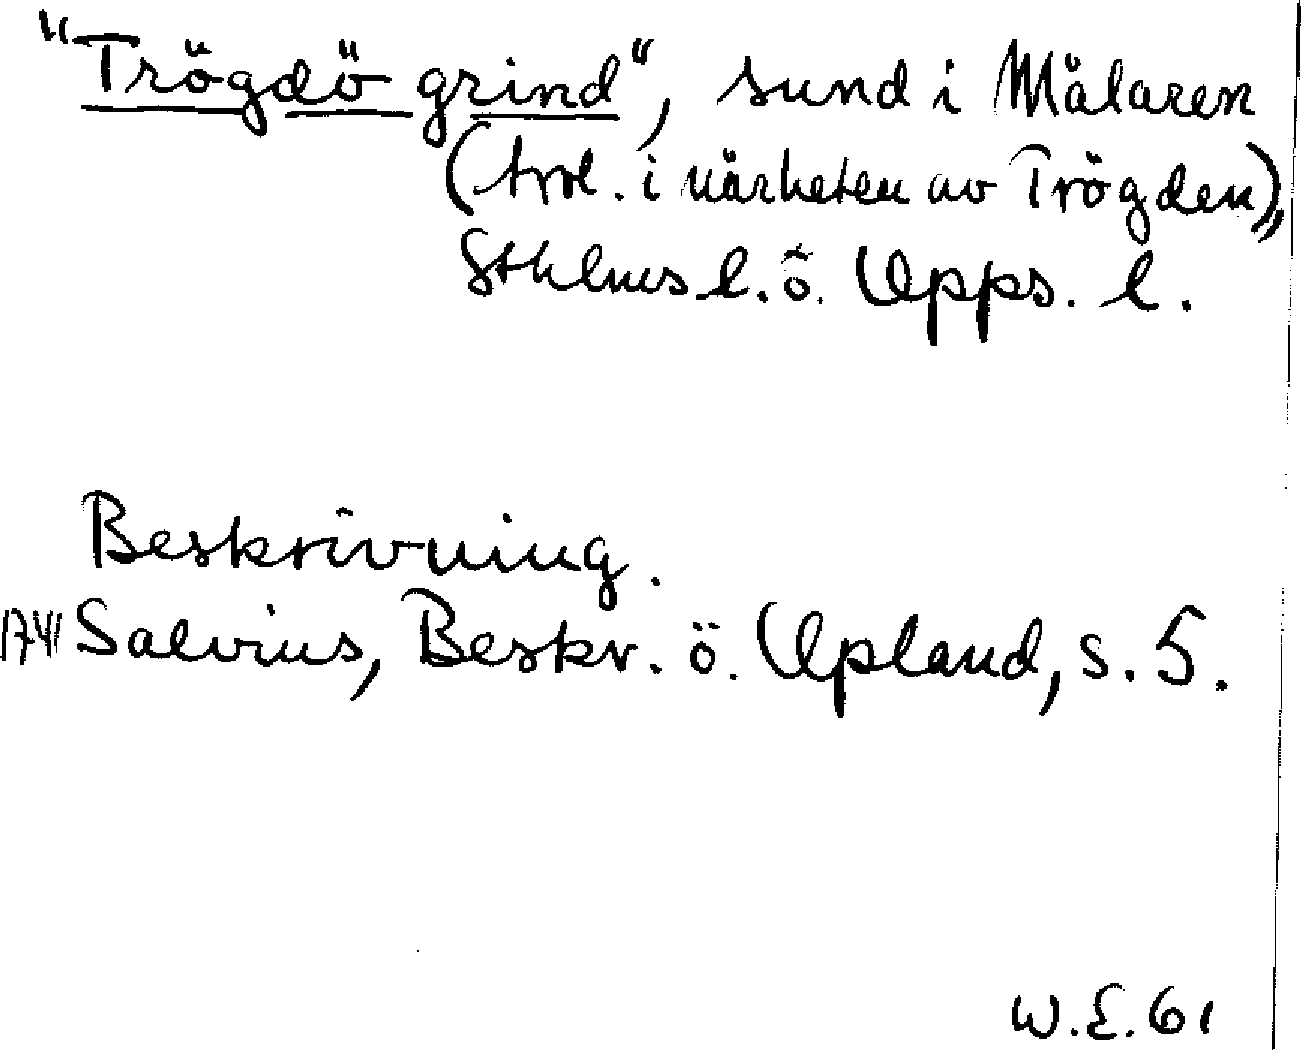 "Trögdö grind", sund i Mälaren
(trol. i närheten av Trögden),
Sthlms l. ö. Upps. l.
Beskrivning.
1741 Salvius, Beskr. ö. Upland, s. 5.
W.E. 61